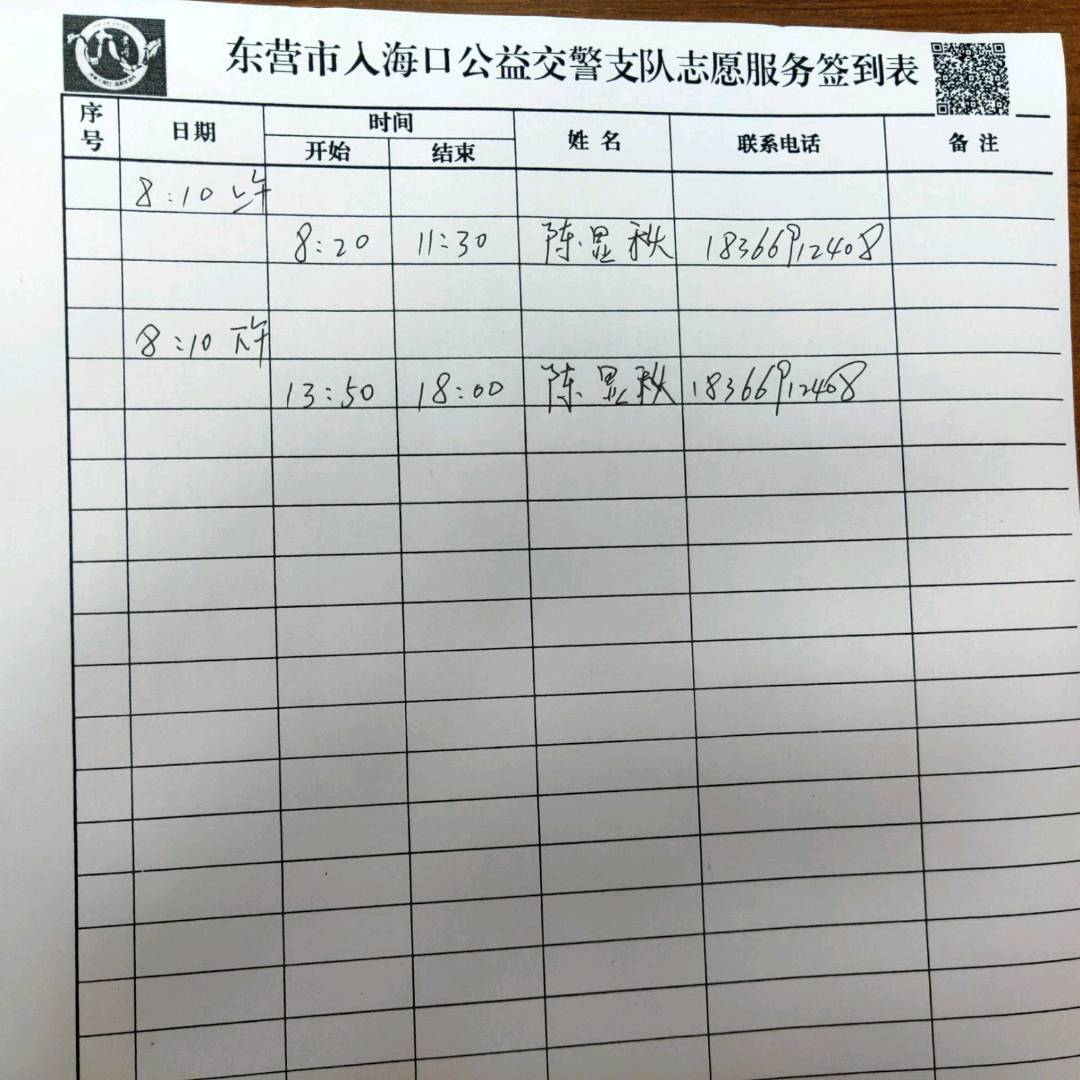 东营市入海口公益交警支队志愿服务签到表
序号 日期 时间 姓名 联系电话 备注
开始 结束
8:10 上午
8:20 11:30 陈显秩 18366912408
8:10 下午
13:50 18:00 陈显秩 18366912408